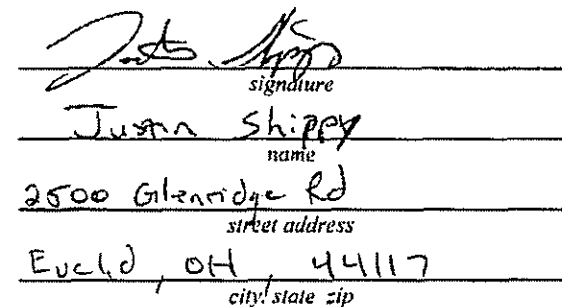 signature
Justin Shippy
name
2500 Glenridge Rd
street address
Euclid, OH, 44117
city, state zip